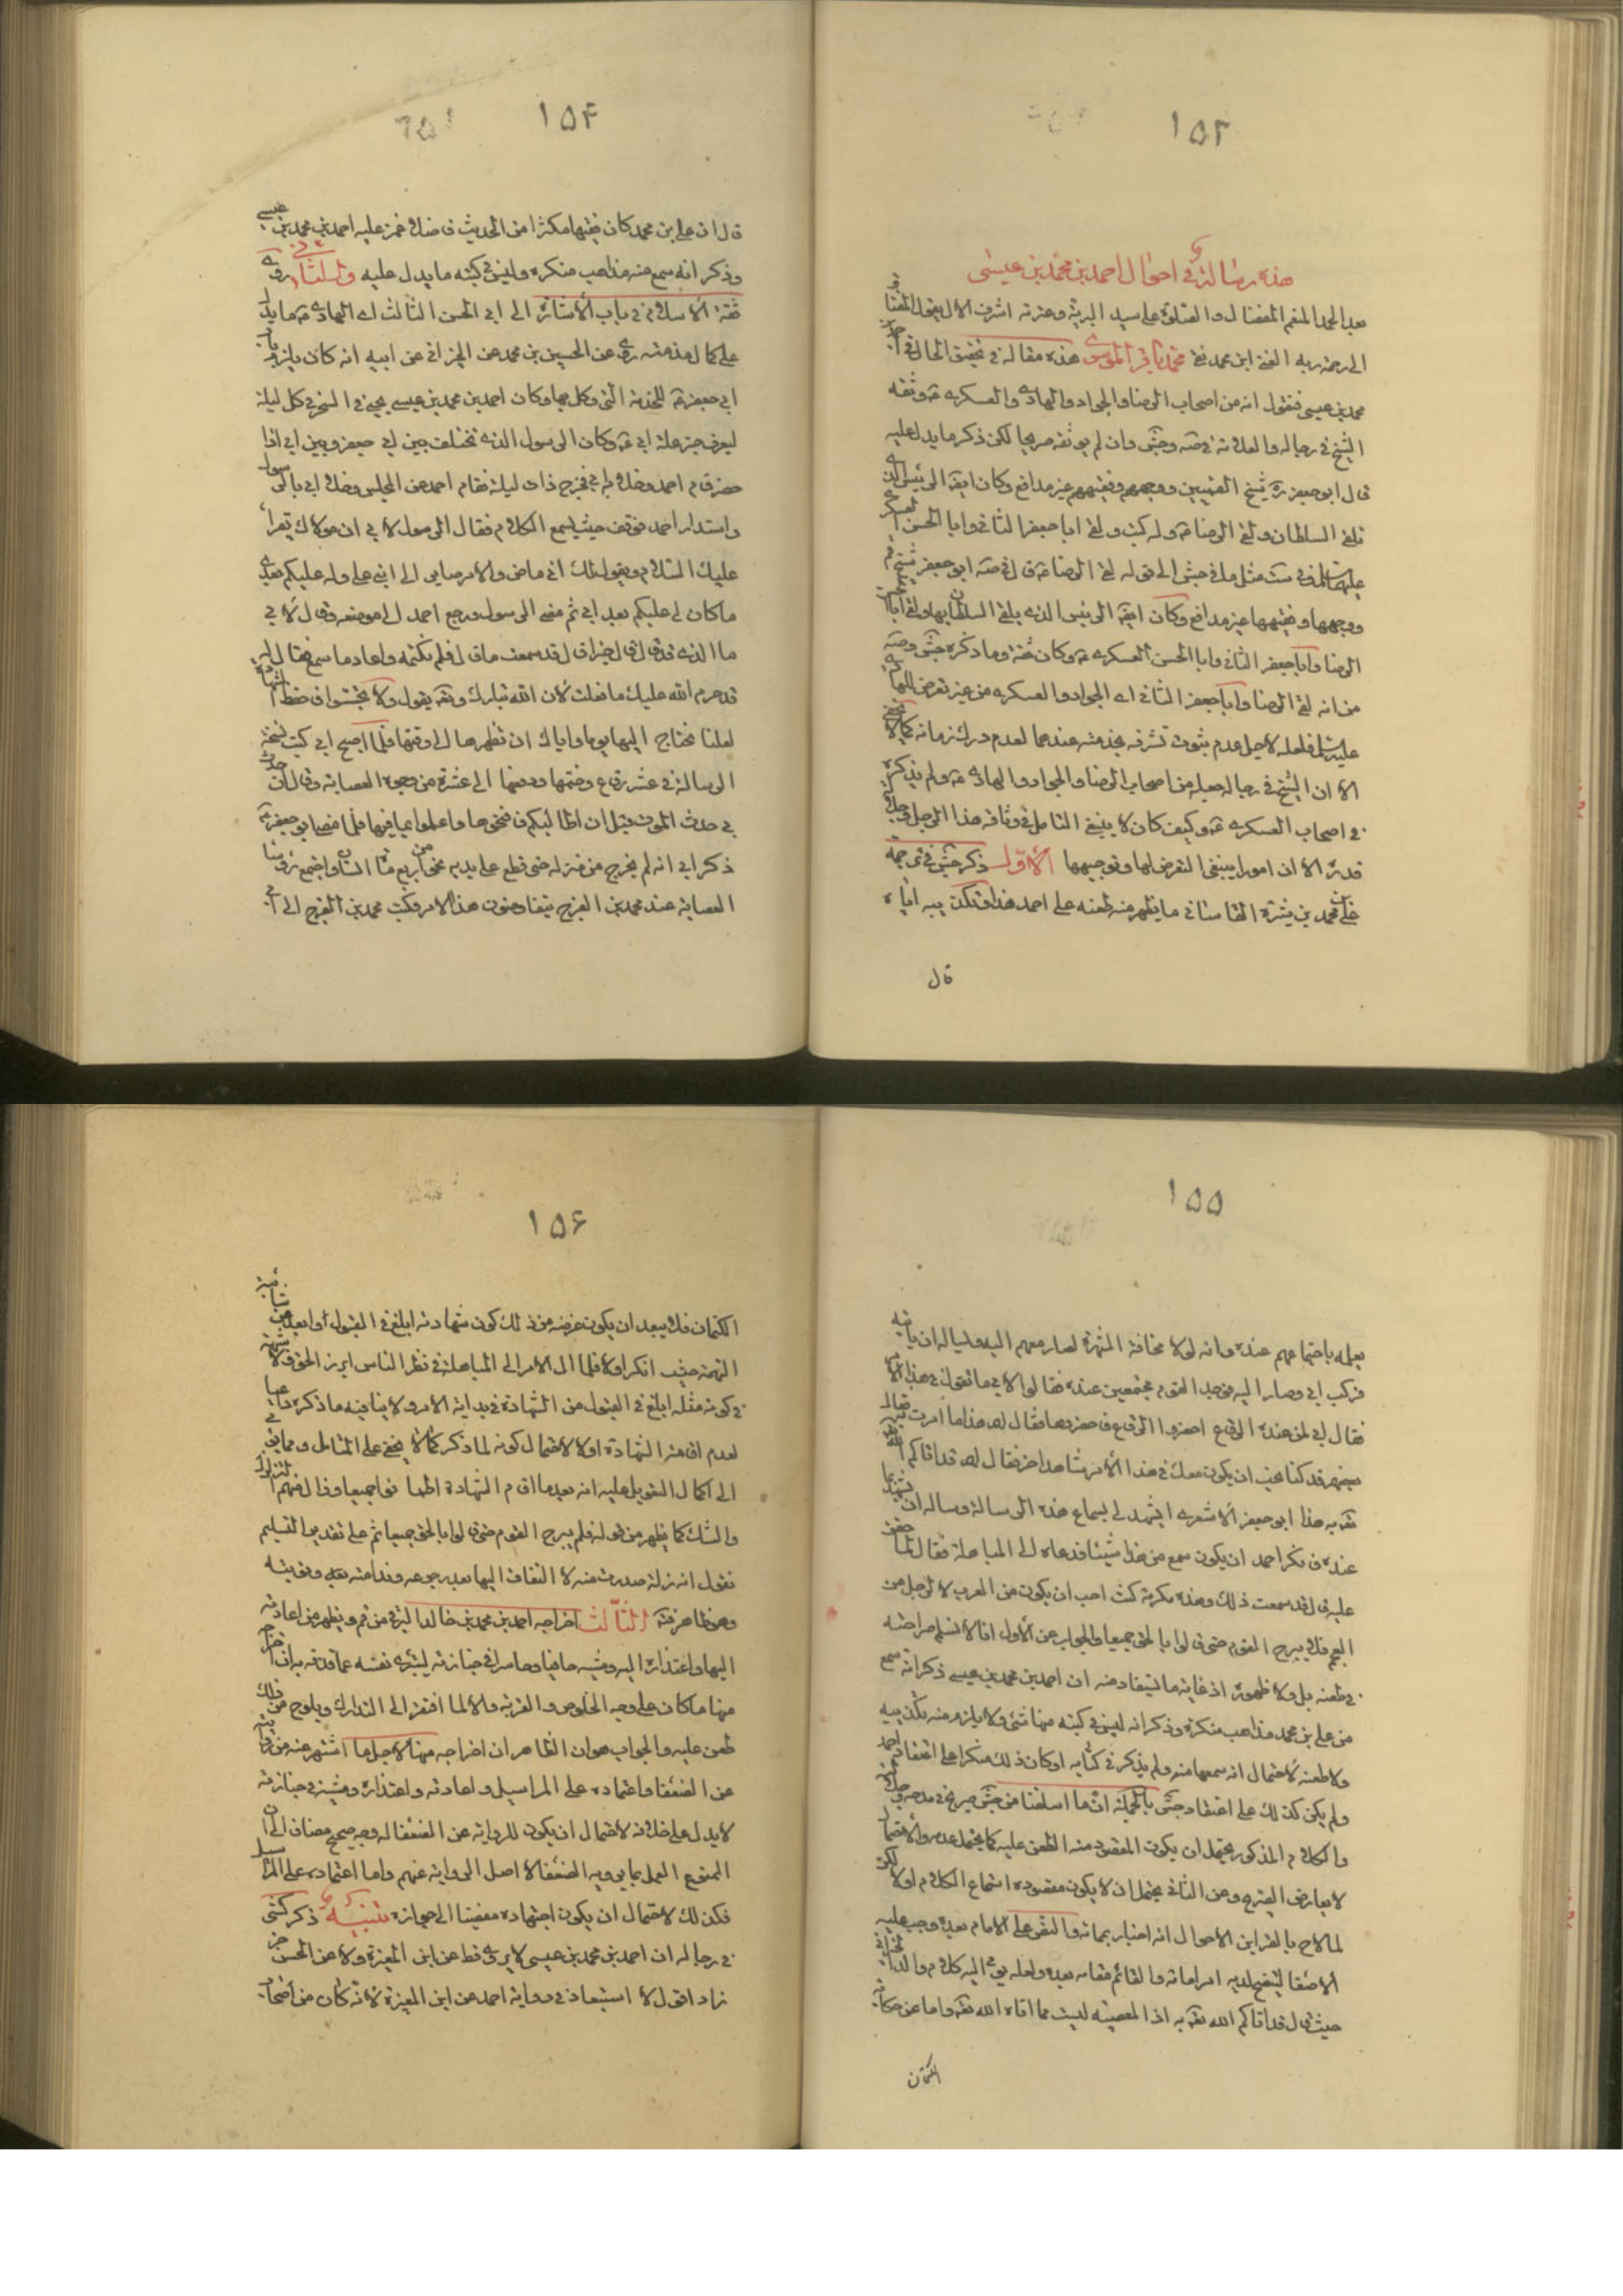 ١٥٣
هذه رسالة في احوال احمد بن محمد بن عيسى
بعد الحمد للمنعم المفضال والصلوة على سيد البرية وعترته اشرف الال يقول المفتاق
الى رحمة ربه الغني ابن محمد نقي محمد باقر الموسوي هذه مقالة في تحقيق الحال في احمد بن
محمد بن عيسى فنقول انه من اصحاب الرضا والجواد والهادي والعسكري ع وثقه
الشيخ في رجاله والعلامة في صه وجش وان لم يوثقه صريحا لكن ذكر ما يدل عليه
قال ابو جعفر ره شيخ القميين ووجههم وفقيههم غير مدافع وكان ايضا الرئيس الذي
يلقى السلطان ولقى الرضا ع وله كتب ولقى ابا جعفر الثاني وابا الحسن العسكري
عليهما السلم في ست مثل ما في جش الى قوله لقى الرضا ع قال في صه ابو جعفر شيخ قم
ووجهها وفقيهها غير مدافع وكان ايضا الرئيس الذي يلقى السلطان بها ولقى ابا الحسن
الرضا وابا جعفر الثاني وابا الحسن العسكري ع وكان ثقة وما ذكره جش وصه
من انه لقى الرضا وابا جعفر الثاني اي الجواد والعسكري من غير تعرض للهادي
عليه السلم فلعله لاجل عدم ثبوت تشرفه بخدمته عندهما لعدم درك زمانه كما لا يخفى
الا ان الشيخ في رجاله جعله من اصحاب الرضا والجواد والهادي ع ولم يذكره
في اصحاب العسكري ع وكيف كان لا ينبغي التامل في وثاقة هذا الرجل وجلالة
قدره الا ان امورا ينبغي التعرض لها وتوجيهها الاول ذكر جش في ترجمة
علي بن محمد بن شيرة القاساني ما يظهر منه طعنه على احمد هذا وتكذيبه اياه
قال
١٥٤
قال ان علي بن محمد كان فقيها مكثرا من الحديث فاضلا غمز عليه احمد بن محمد بن عيسى
وذكر انه سمع منه مذاهب منكرة وليس في كتبه ما يدل عليه والثاني روى
ثقة الاسلام في باب الاشارة الى ابي الحسن الثالث اي الهادي ع ما يدل
على كمال مذمته روى عن الحسين بن محمد عن الخيراني عن ابيه انه كان يلزم باب
ابي جعفر ع للخدمة التي وكل بها وكان احمد بن محمد بن عيسى يجيء في السحر في كل ليلة
ليعرف خبر علة ابي ع وكان الرسول الذي يختلف بين ابي جعفر وبين ابي اذا
حضر قام احمد وخلا به ابي فخرج ذات ليلة فقام احمد عن المجلس وخلا ابي بالرسول
واستدار احمد فوقف حيث يسمع الكلام فقال الرسول لابي ان مولاك يقرا
عليك السلام ويقول لك اني ماض والامر صاير الى ابني علي وله عليكم بعدي
ما كان لي عليكم بعد ابي ثم مضى الرسول ورجع احمد الى موضعه وقال لابي
ما الذي قد قال لك قال خيرا قال قد سمعت ما قال فلم تكتمه واعاد ما سمع فقال له ابي
قد حرم الله عليك ما فعلت لان الله تبارك وتعالى يقول ولا تجسسوا فاحفظ الشهادة
لعلنا نحتاج اليها يوما واياك ان تظهرها الى وقتها فلما اصبح ابي كتب نسخة
الرسالة في عشر رقاع وختمها ودفعها الى عشرة من وجوه العصابة وقال ان حدث
بي حدث الموت قبل ان اطالبكم فافتحوها واعلموا بما فيها فلما مضى ابو جعفر ع
ذكر ابي انه لم يخرج من منزله حتى قطع على يديه نحو من اربع مائة انسان واجتمع رؤساء
العصابة عند محمد بن الفرج يتفاوضون هذا الامر فكتب محمد بن الفرج الى ابي
١٥٥
يعلمه باجتماعهم عنده وانه لولا مخافة الشهرة لصار معهم اليه ويساله ان ياتيه
فركب ابي وصار اليه فوجد القوم مجتمعين عنده فقالوا لابي ما تقول في هذا الامر
فقال ابي لمن عنده الرقاع احضروا الرقاع فاحضروها فقال لهم هذا ما امرت به فقال
بعضهم قد كنا نحب ان يكون معك في هذا الامر شاهد اخر فقال لهم قد اتاكم الله
تعالى به هذا ابو جعفر الاشعري يشهد لي بسماع هذه الرسالة وساله ان يشهد بما
عنده فانكر احمد ان يكون سمع من هذا شيئا فدعاه ابي الى المباهلة فقال لما حقق
عليه قال قد سمعت ذلك وهذه مكرمة كنت احب ان يكون من العرب لا لرجل من
العجم فلم يبرح القوم حتى قالوا بالحق جميعا والجواب عن الاول انا لا نسلم صراحته
في طعنه بل ولا ظهوره اذ غاية ما يستفاد منه ان احمد بن محمد بن عيسى ذكر انه سمع
من علي بن محمد مذاهب منكرة وذكر انه ليس في كتبه منها شيء ولا يلزم منه تكذيبه
ولا طعنه لاحتمال انه سمعها منه ولم يذكر في كتابه او كان ذلك منكرا على اعتقاد احمد
ولم يكن كذلك على اعتقاد جش بالجملة ان ما اسلفنا من جش صريح في مدحه وجلالته
والكلام المذكور يحتمل ان يكون المقصود منه الطعن عليه كما يحتمل عدمه والاحتمال
لا يعارض الصريح وعن الثاني يحتمل ان لا يكون مقصوده استماع الكلام اولا لكن
لما لاح بالقراين الاحوال انه اخبار بمماته والنص على الامام بعده وجب عليه
الاصغاء ليتضح لديه امر امامه والقائم مقامه بعده ولعله يومئ اليه كلام والد الخيراني
حيث قال قد اتاكم الله تعالى به اذ المعصية ليست مما اتاه الله تعالى واما عن حكاية
الكتمان
١٥٦
الكتمان فلا يبعد ان يكون غرضه من ذلك كون شهادته ابلغ في القبول او ابعد من شائبة
التهمة حيث انكر اولا فلما ال الامر الى المباهلة في نظر الناس ابرز الحق ولا شبهة
في كون مثله ابلغ في القبول من الشهادة في بداية الامر ولا ينافيه ما ذكره
لعدم اف هذه الشهادة اولا لاحتمال كونه لما ذكر كما لا يخفى على المتامل ومما
الى اكمال التعويل عليه انه بعد ما اقام الشهادة اطما نوا جميعا وزال عنهم التزلزل
والشك كما يظهر من قوله فلم يبرح القوم حتى قالوا بالحق جميعا ثم على تقدير التسليم
نقول انه زلة صدرت منه لا التفات اليها بعد رجوعه وندامته وتوبته
وهو ظاهر الثالث اخراجه احمد بن محمد بن خالد البرقي من قم ويظهر من اعادته
اليها واعتذاره اليه ومشيه حافيا وحاسرا في جنازته ليبرئ نفسه عما قذفه به ان اخراجه
منها ما كان على وجه الخلوص والقربة والا لما افتقر الى التدارك ويلوح من ذلك
طعن عليه والجواب هو ان الظاهر ان اخراجه منها لاجل ما اشتهر عنه من روايته
عن الضعفاء واعتماده على المراسيل واعادته واعتذاره ومشيه في جنازته
لا يدل على خلافه لاحتمال ان يكون للرواية عن الضعفا له وجه صحيح مضافا الى ان
الممنوع العمل بما يرويه الضعفا لا اصل الرواية عنهم واما اعتماده على المراسيل
فكذلك لاحتمال ان يكون اجتهاده مفضيا الى جوازه تنبيه ذكر كش
في رجاله ان احمد بن محمد بن عيسى لا يروي قط عن ابن المغيرة ولا عن الحسن خر
زاد اقول لا استبعاد في رواية احمد عن ابن المغيرة لانه كان من اصحاب